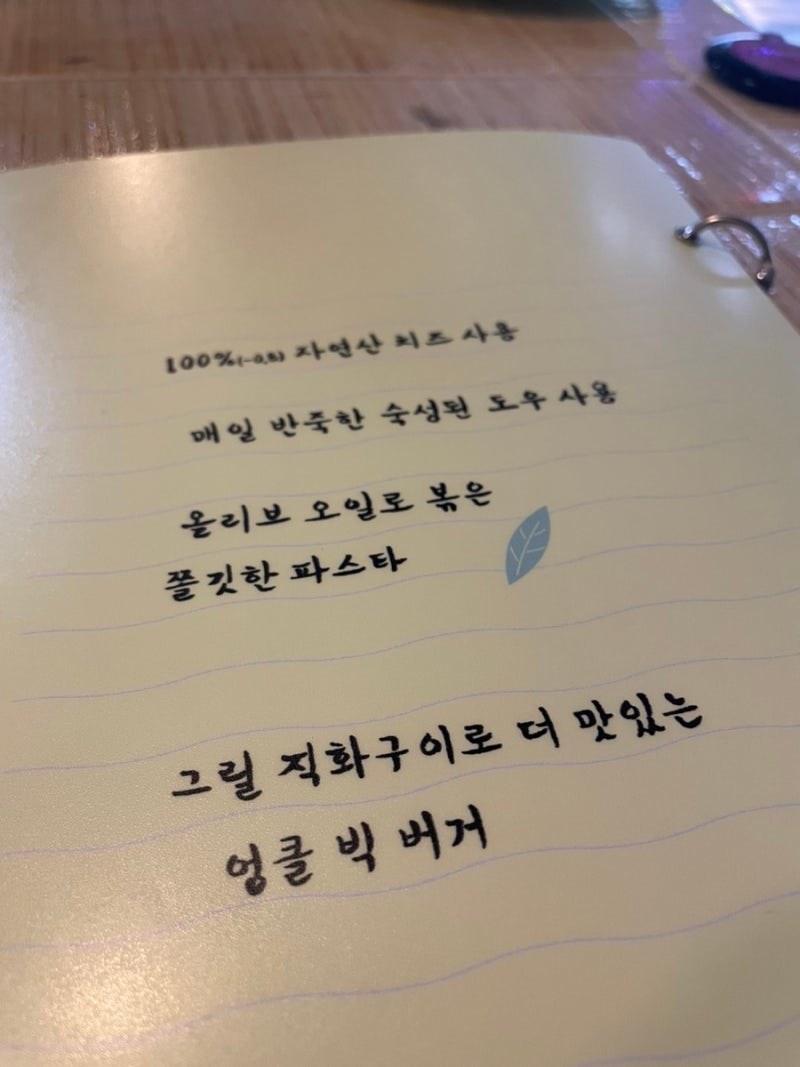 100%(-0.5) 자연산 치즈 사용
매일 반죽한 숙성된 도우 사용
올리브 오일로 볶은
쫄깃한 파스타
그릴 직화구이로 더 맛있는
엉클 빅 버거